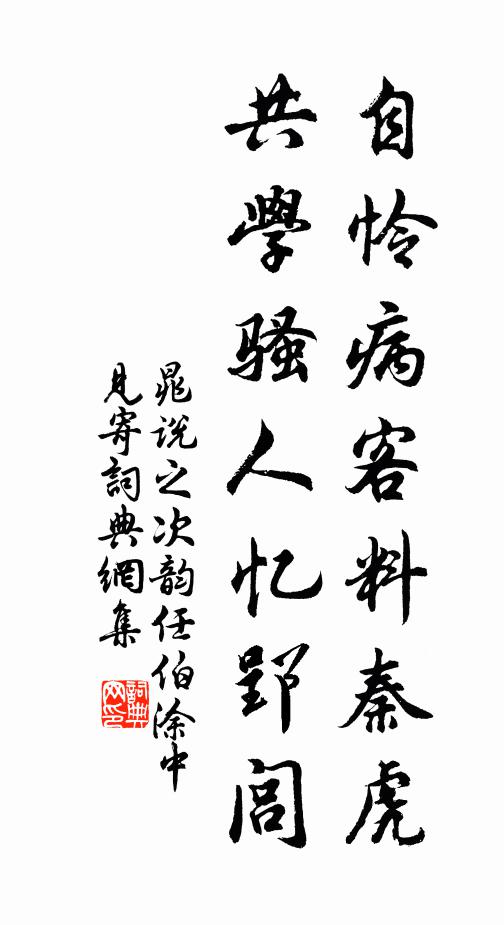 自怜病客料秦虎
共學騷人忆郢閭
晁说之次韵任伯涂中
見寄詞典網集
詞典网印